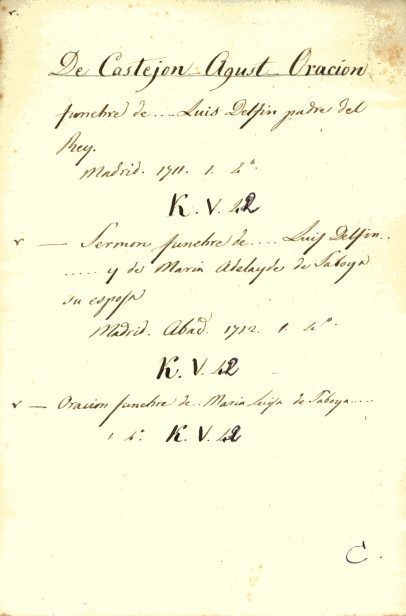 De Castejon Agust Oracion
funebre de.... Luis Delfin padre del
Rey.
Madrid. 1711. 1. 4º.
K. V. 42
v — Sermon funebre de..... Luis Delfin..
..... y de Maria Adelayde de Saboya
su esposa
Madrid. Abad. 1712. 1. 4º.
K. V. 42
v — Oracion funebre de.. Maria Luisa de Saboya.....
1. 4º. K. V. 42
C.